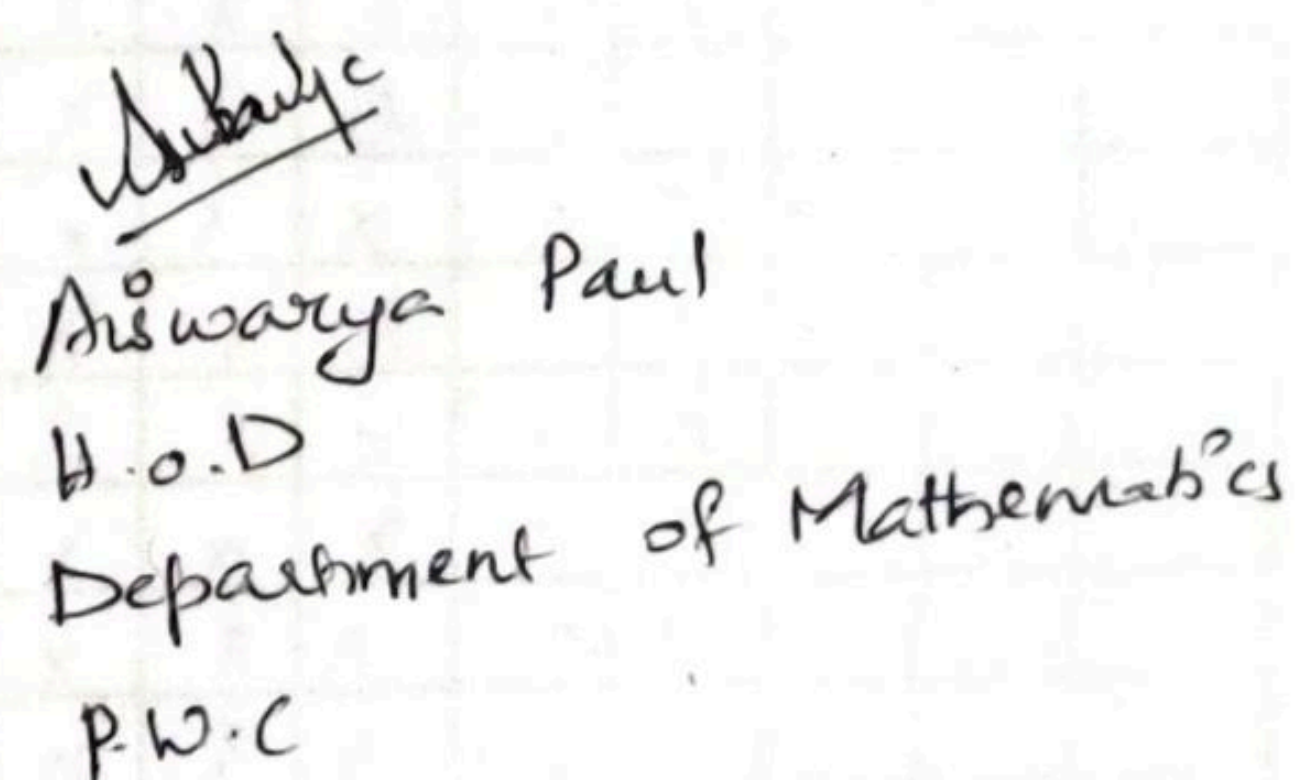 Aiswarya Paul
H.O.D
Department of Mathematics
P.W.C